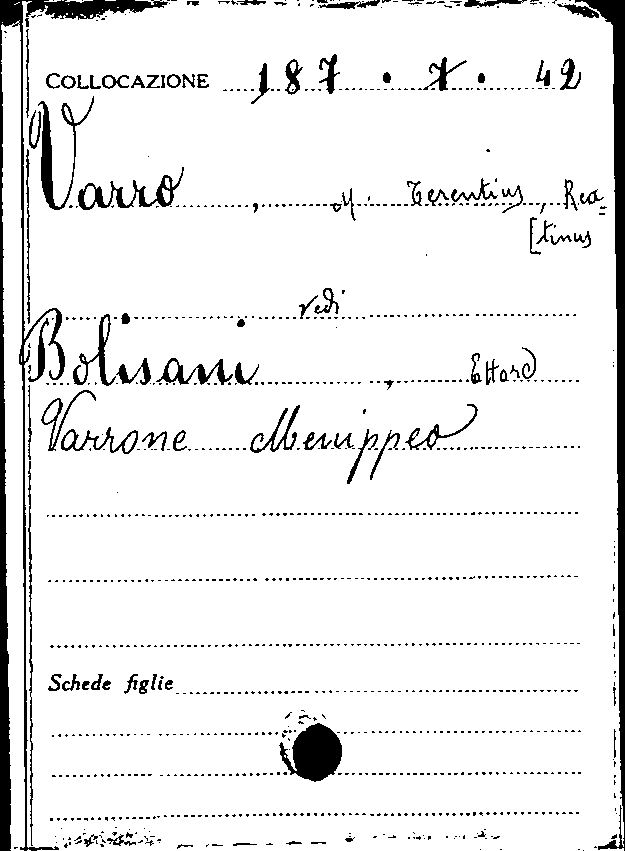 COLLOCAZIONE 187 . 7 . 42
Varro , M. Terentius, Rea=
[tinus
vedi
Bolisani , Ettore
Varrone Menippeo
Schede figlie